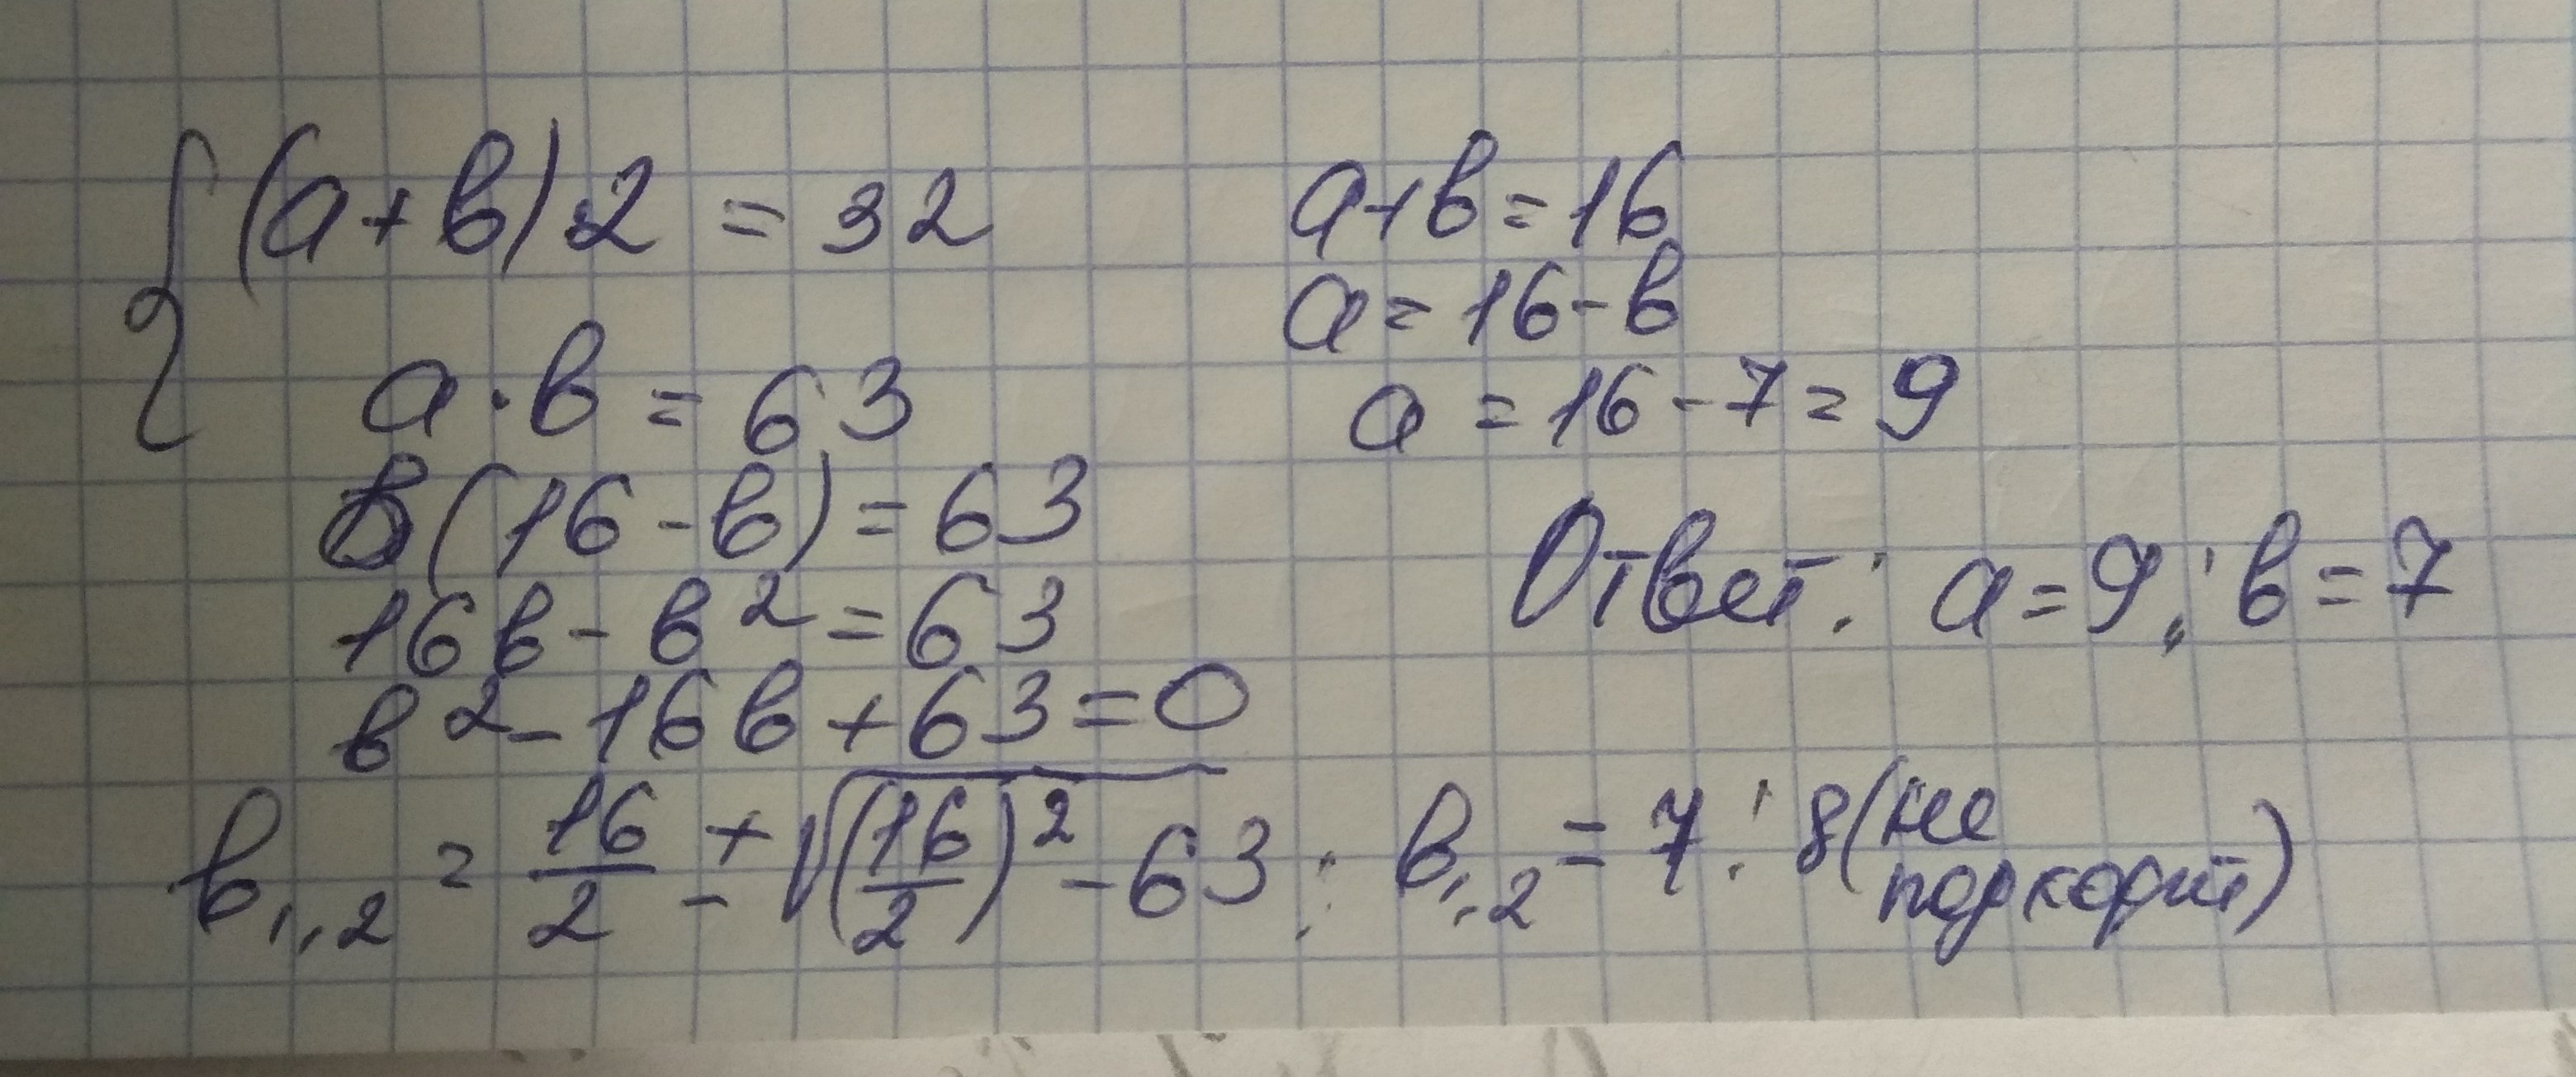 (a+в)·2 = 32
a·в = 63
в(16-в)=63
16в-в²=63
в²-16в+63=0
в₁,,₂ = 16/2 ± √((16/2)²-63) ; в₁,,₂ = 7 ; 8 (не подходит)
a+в=16
a=16-в
a=16-7=9
Ответ: a=9; в=7